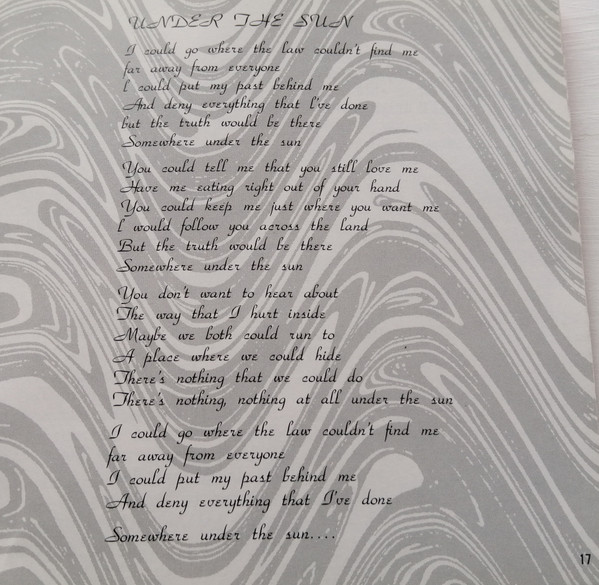 UNDER THE SUN
I could go where the law couldn't find me
far away from everyone
I could put my past behind me
And deny everything that I've done
but the truth would be there
Somewhere under the sun
You could tell me that you still love me
Have me eating right out of your hand
You could keep me just where you want me
I would follow you across the land
But the truth would be there
Somewhere under the sun
You don't want to hear about
The way that I hurt inside
Maybe we both could run to
A place where we could hide
There's nothing that we could do
There's nothing, nothing at all under the sun
I could go where the law couldn't find me
far away from everyone
I could put my past behind me
And deny everything that I've done
Somewhere under the sun....
17